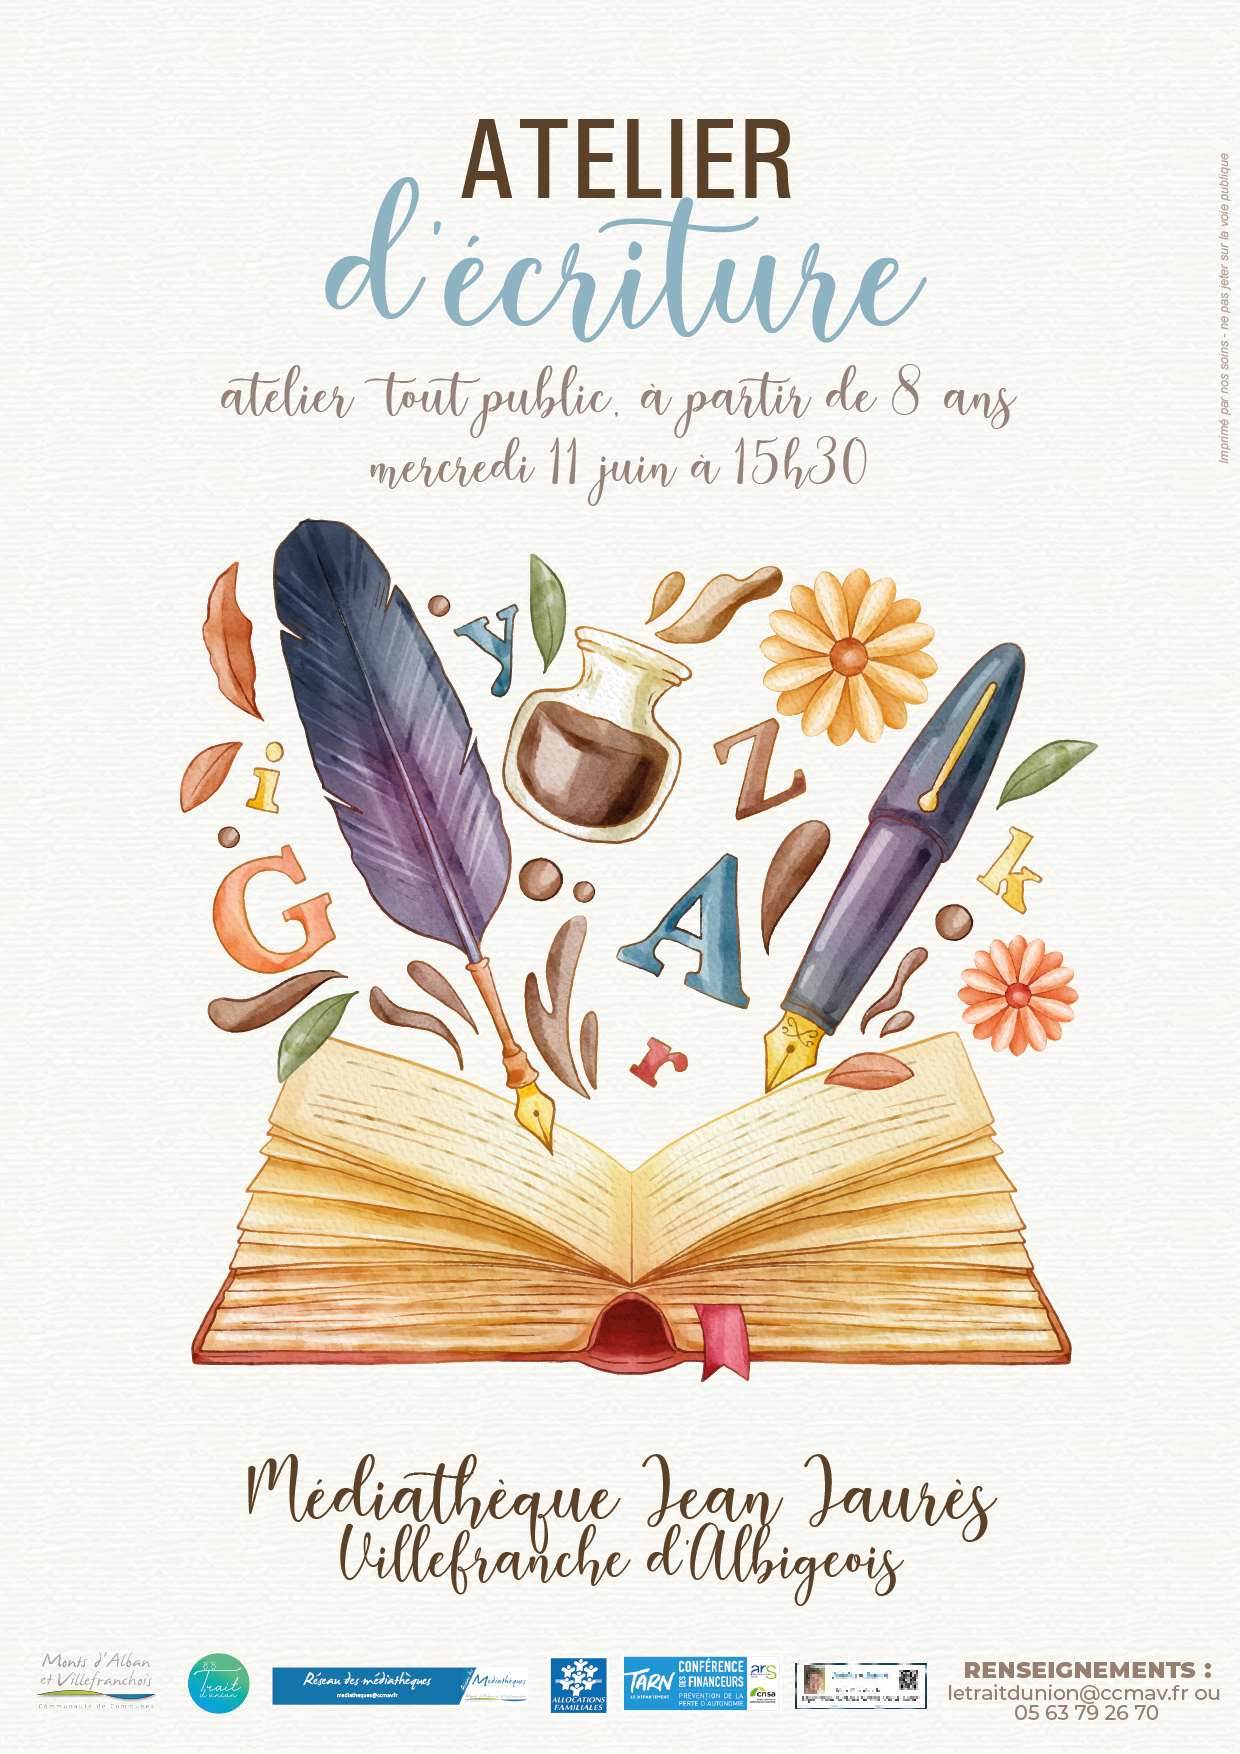 ATELIER
d'écriture
atelier tout public, à partir de 8 ans
mercredi 11 juin à 15h30
Imprimé par nos soins - ne pas jeter sur la voie publique
y
i
Z
G
A
k
r
Médiathèque Jean Jaurès
Villefranche d'Albigeois
Monts d'Alban
et Villefranchois
Communauté de Communes
Trait
d'union
Réseau des médiathèques
mediatheques@ccmav.fr
Médiathèques
ALLOCATIONS
FAMILIALES
TARN
LE DÉPARTEMENT
CONFÉRENCE
DES FINANCEURS
PRÉVENTION DE LA
PERTE D'AUTONOMIE
ars
cnsa
RENSEIGNEMENTS :
letraitdunion@ccmav.fr ou
05 63 79 26 70